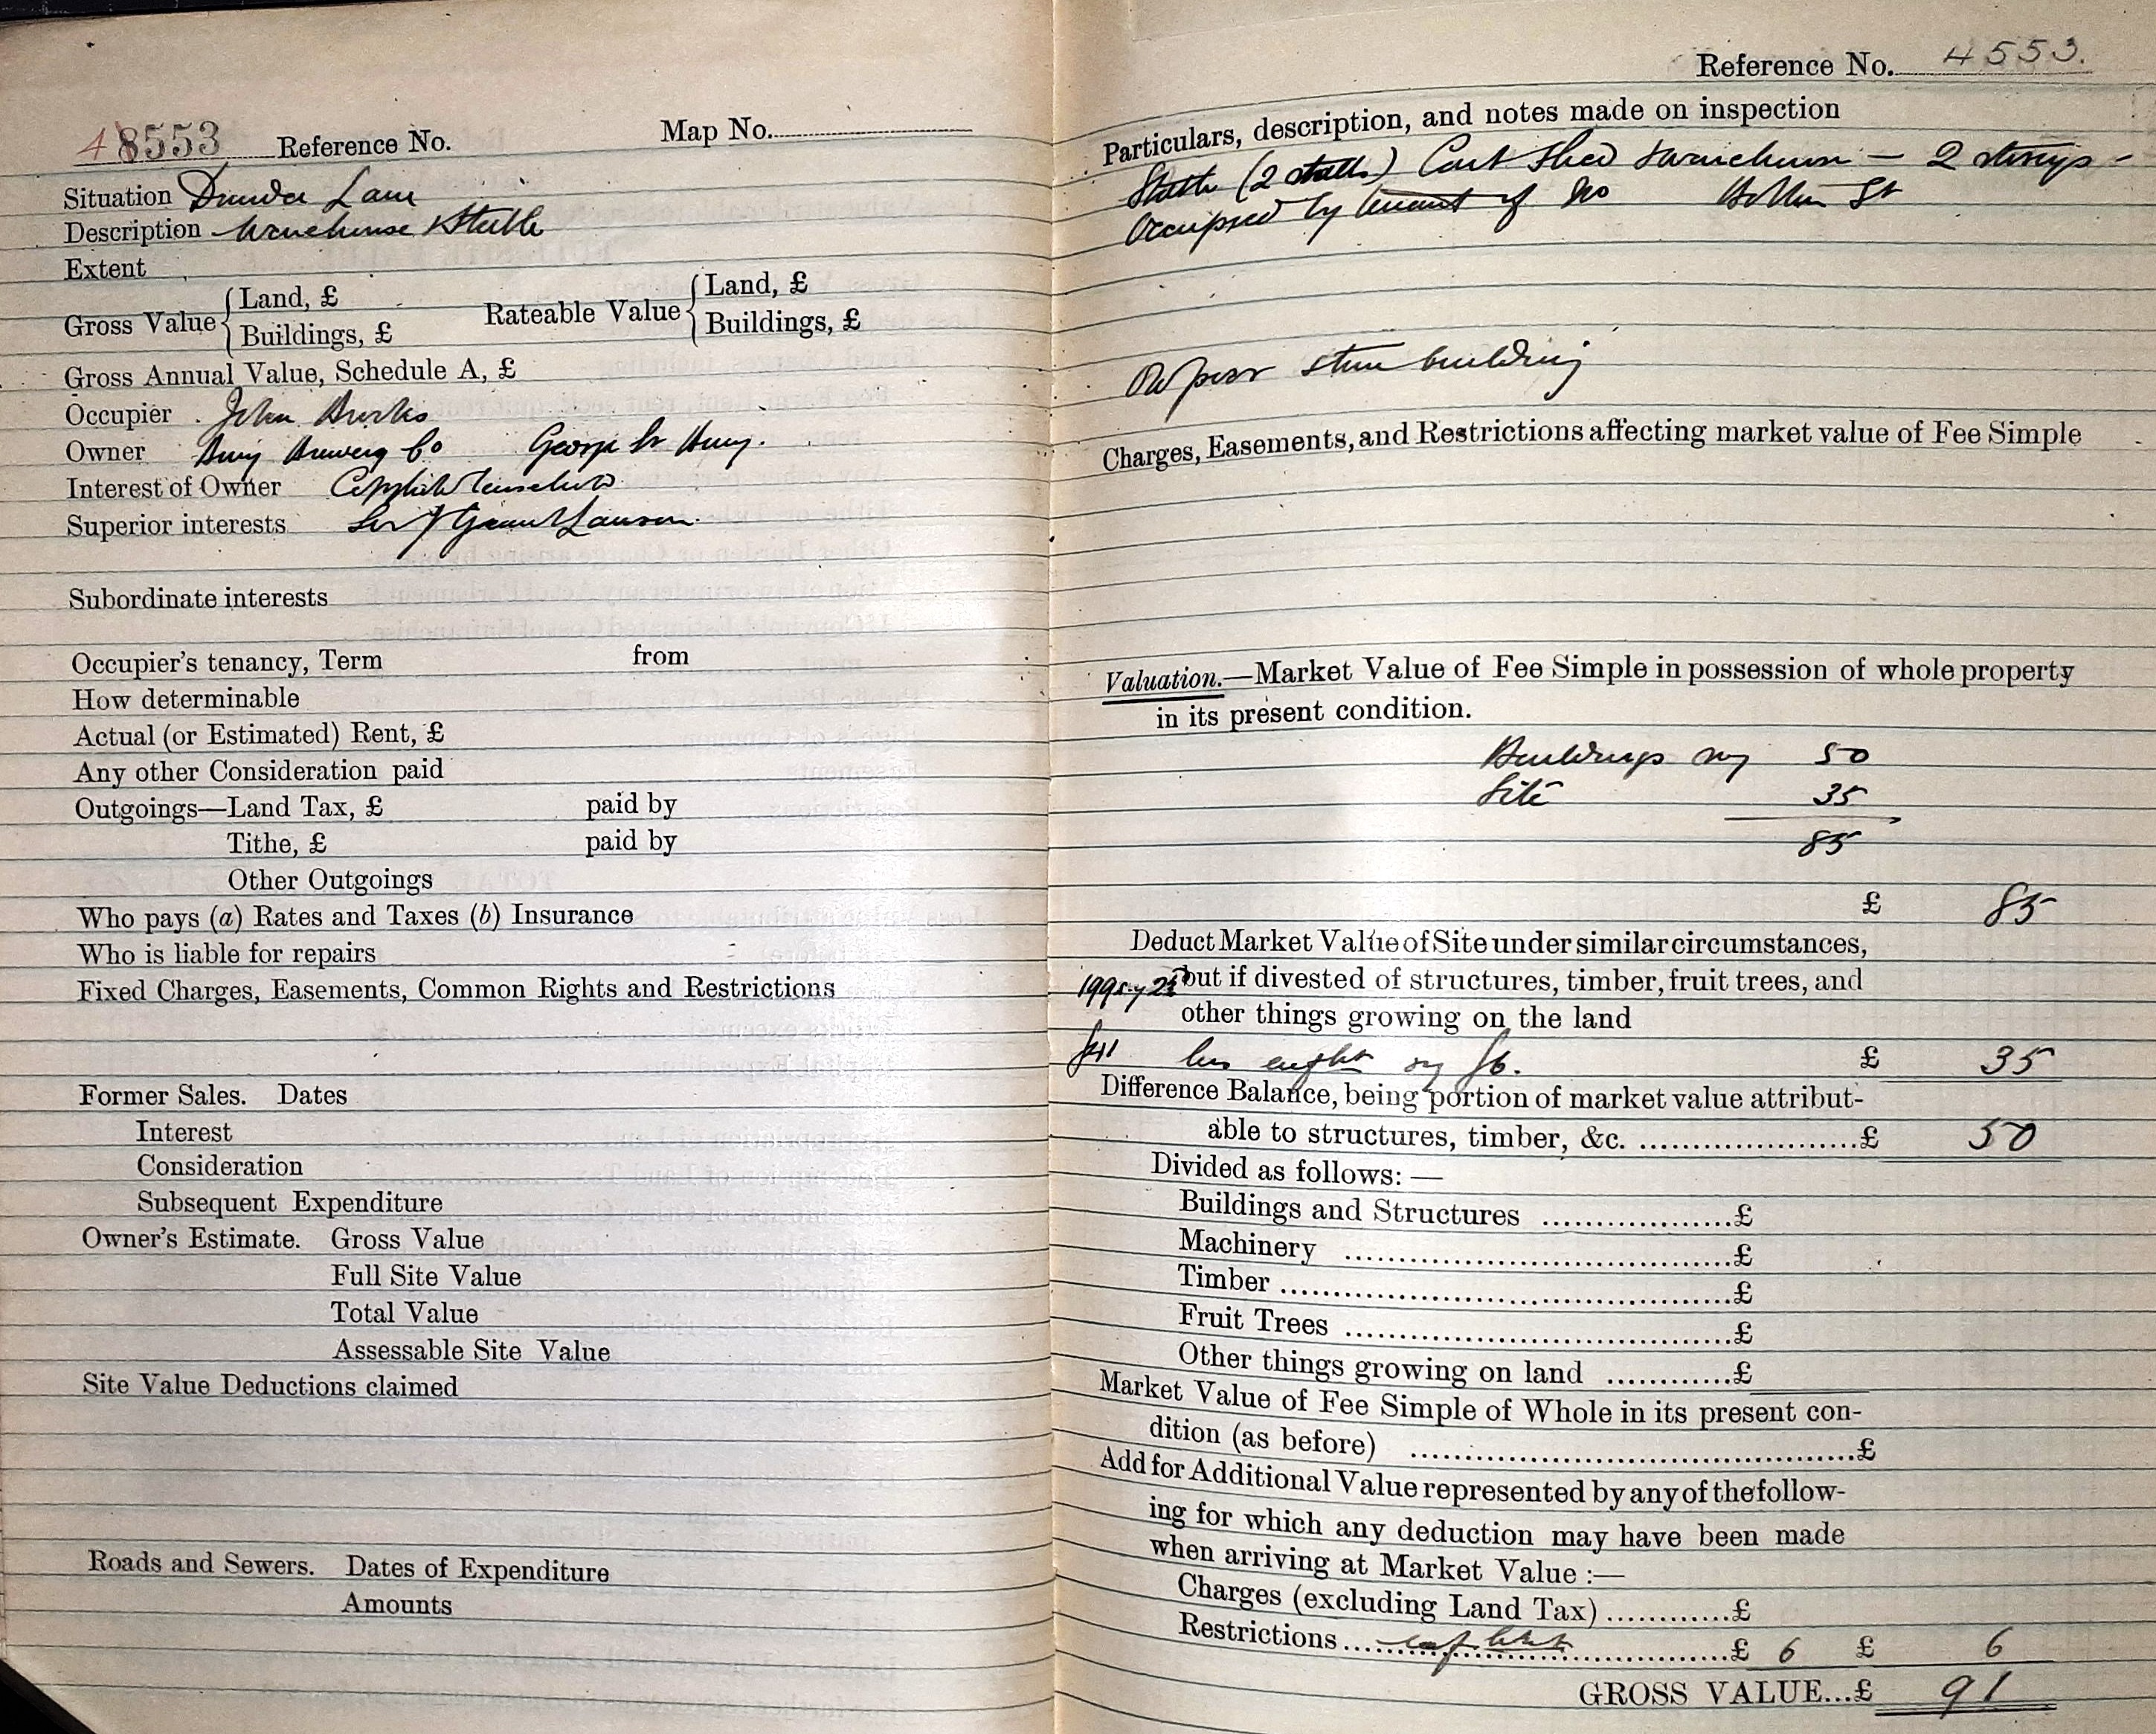 48553 Reference No. Map No.
Situation Dundee Lane
Description Warehouse & Stable
Extent
Gross Value { Land, £ Rateable Value { Land, £
Buildings, £ Buildings, £
Gross Annual Value, Schedule A, £
Occupier John Brooks
Owner Bury Brewery Co George St Bury.
Interest of Owner Copyhold
Superior interests Sir J Grant Lawson.
Subordinate interests
Occupier's tenancy, Term from
How determinable
Actual (or Estimated) Rent, £
Any other Consideration paid
Outgoings—Land Tax, £ paid by
Tithe, £ paid by
Other Outgoings
Who pays (a) Rates and Taxes (b) Insurance
Who is liable for repairs
Fixed Charges, Easements, Common Rights and Restrictions
Former Sales. Dates
Interest
Consideration
Subsequent Expenditure
Owner's Estimate. Gross Value
Full Site Value
Total Value
Assessable Site Value
Site Value Deductions claimed
Roads and Sewers. Dates of Expenditure
Amounts
Reference No. 4553.
Particulars, description, and notes made on inspection
Stable (2 stalls) Cart shed & warehouse — 2 storeys -
Occupied by tenant of No St
Old poor stone building
Charges, Easements, and Restrictions affecting market value of Fee Simple
Valuation.—Market Value of Fee Simple in possession of whole property
in its present condition.
Buildings say 50
Site 35
85
£ 85
Deduct Market Value of Site under similar circumstances,
but if divested of structures, timber, fruit trees, and
other things growing on the land
£41 less say £6. £ 35
Difference Balance, being portion of market value attribut-
able to structures, timber, &c. £ 50
Divided as follows:—
Buildings and Structures £
Machinery £
Timber £
Fruit Trees £
Other things growing on land £
Market Value of Fee Simple of Whole in its present con-
dition (as before) £
Add for Additional Value represented by any of the follow-
ing for which any deduction may have been made
when arriving at Market Value :—
Charges (excluding Land Tax) £
Restrictions £ 6 £ 6
GROSS VALUE...£ 91